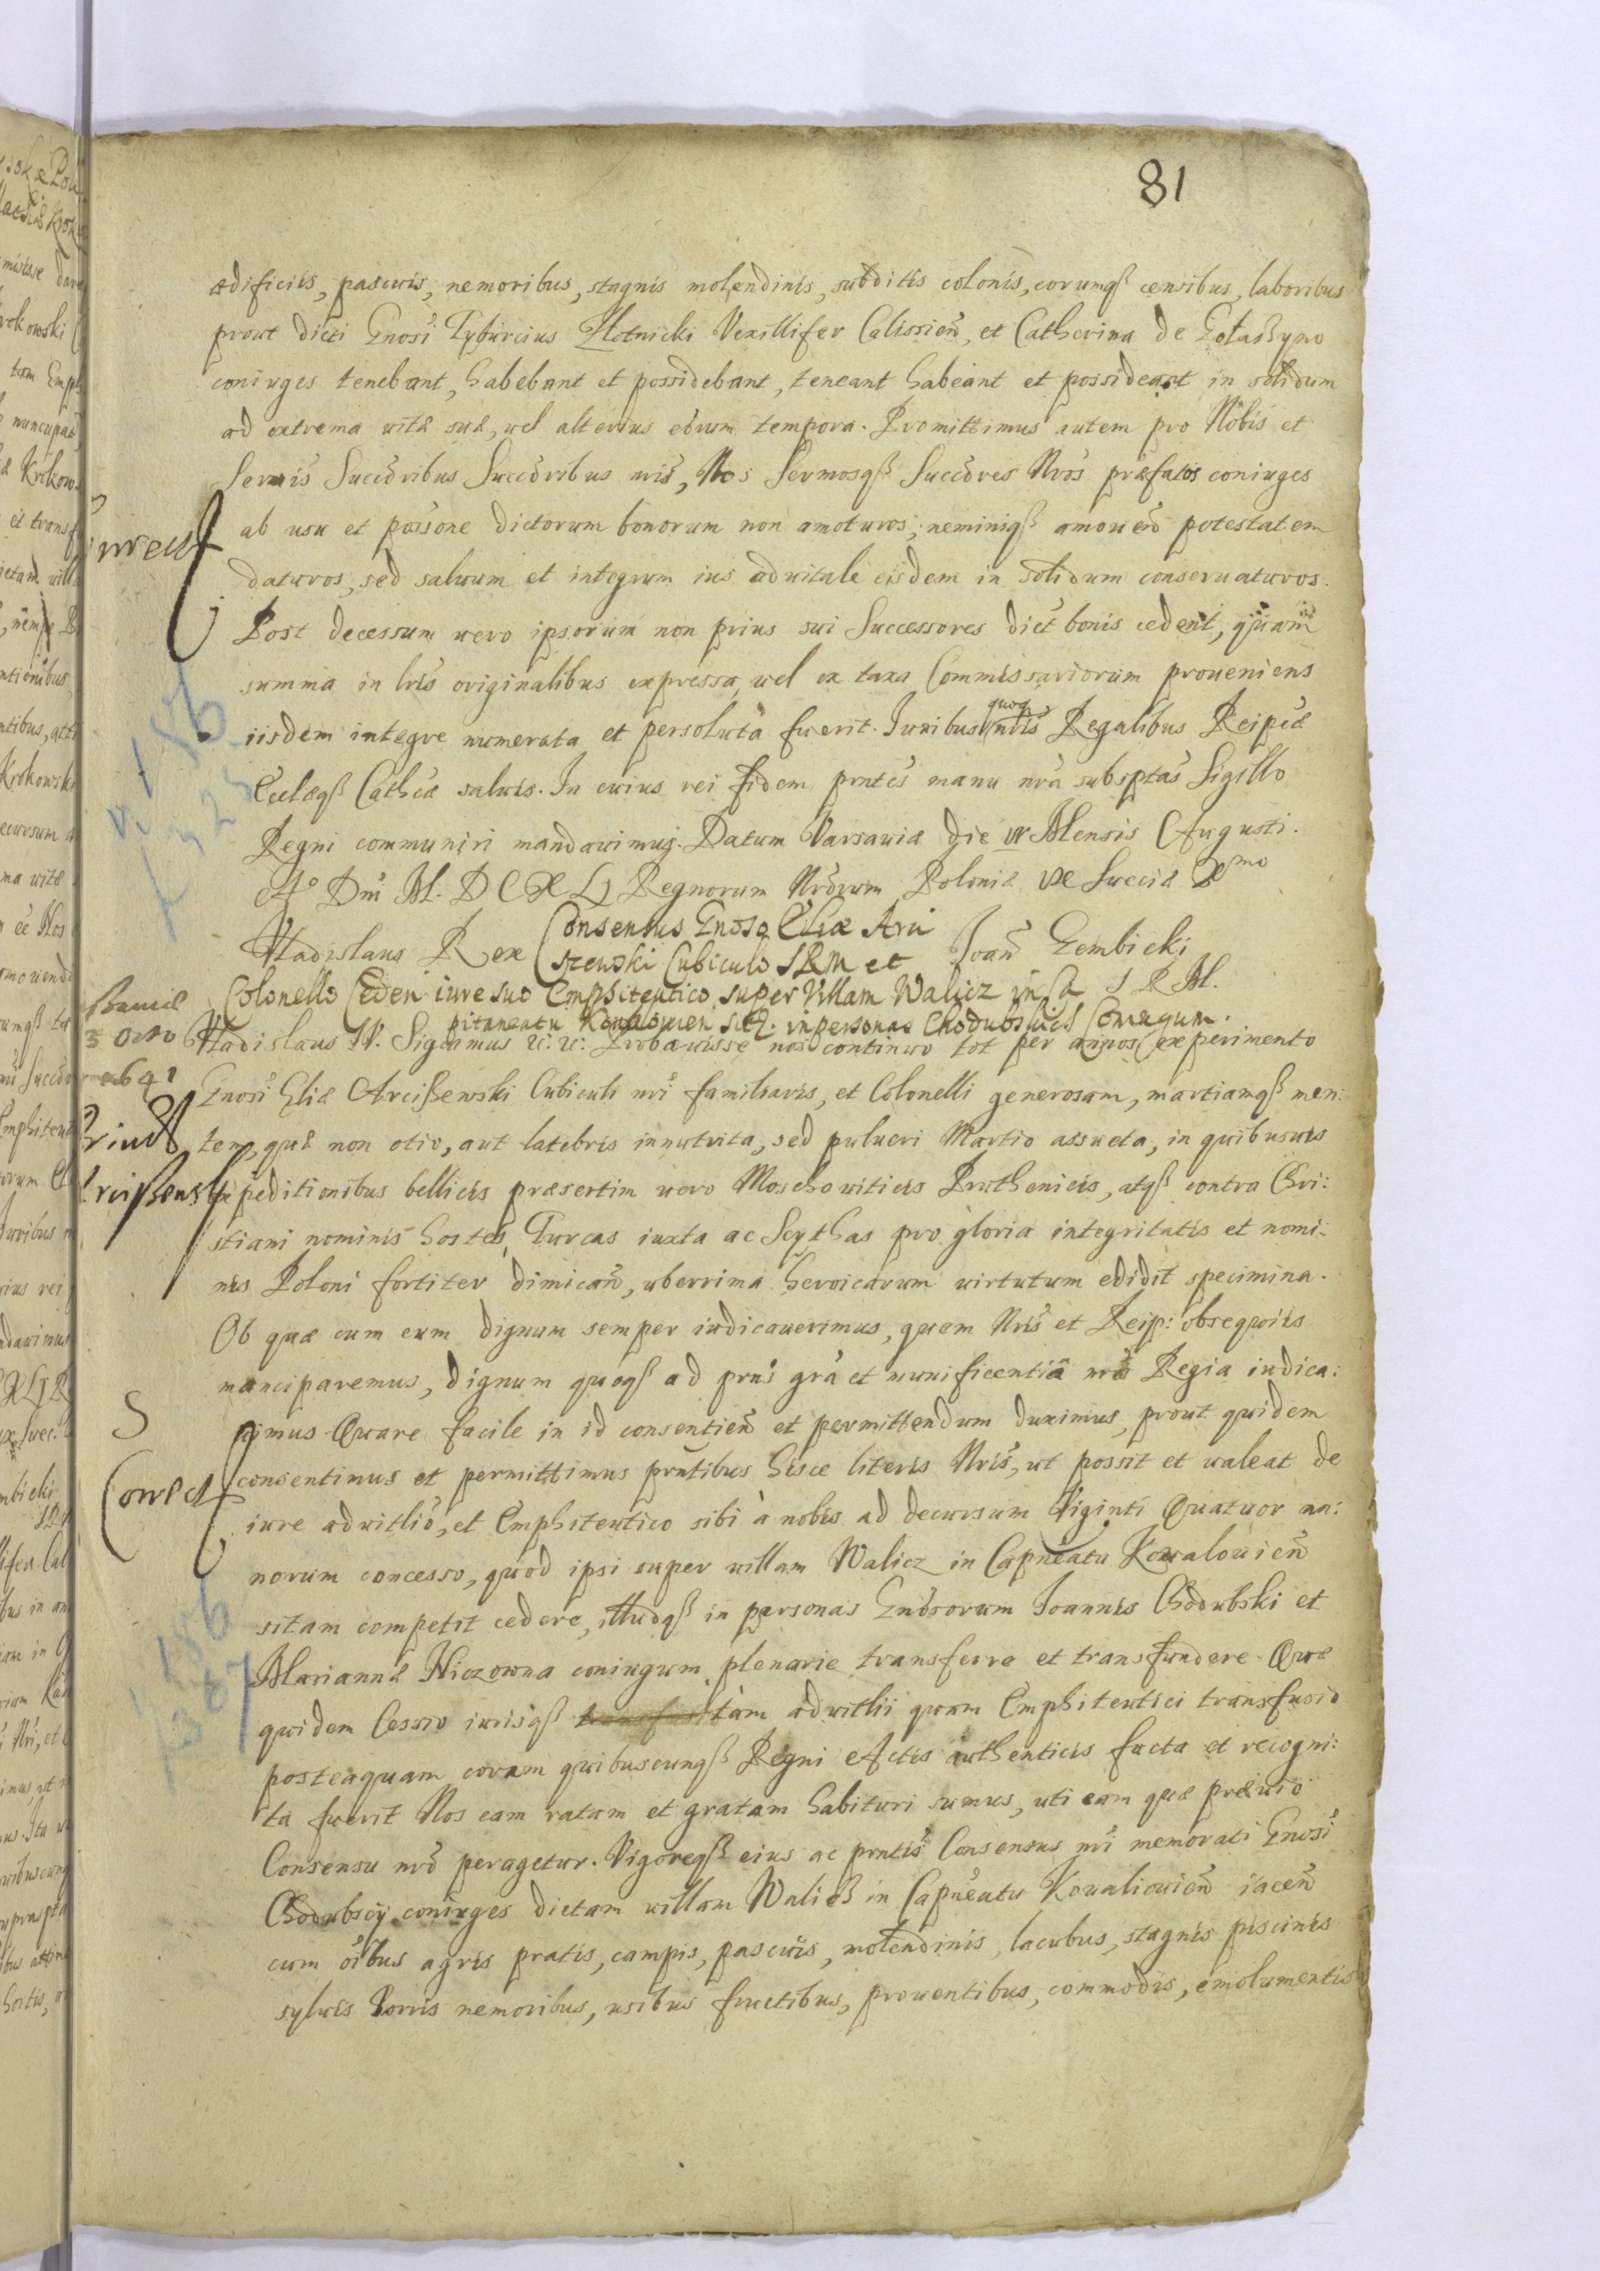 81
ædificiis, pascuis, nemoribus, stagnis molendinis, subditis colonis, eorumqз censibus, laboribus
prout dicti Gnosi Tyburcius Złotnicki Vexillifer Calissień, et Catherina de Gołaszyno
coniuges tenebant, habebant et possidebant, teneant habeant et possideant in solidum
ad extrema vitæ suæ, vel alterius eorum tempora. Promittimus autem pro Nobis et
Sermis Succōribus Succōribus nris, Nos Sermosqз Succōres Nros præfatos coniuges
ab usu et possōne dictorum bonorum non amoturos, neminiqз amouēd potestatem
daturos, sed saluum et integrum ius aduitale eisdem in solidum conseruaturos.
Post decessum uero ipsorum non prius sui Successores dict bonis cedent, quam
summa in lris originalibus expressa, uel ex taxa Commissariorum proueniens
iisdem integre numerata et persoluta fuerit. Iuribus quoqз nris Regalibus Reipcæ
Ecclæqз Cathcæ saluis. In cuius rei fidem pntes manu nra subsptas Sigillo
Regni communiri mandauimus. Datum Varsauiæ die Mensis Augusti.
Ao Dni M. D C X L I Regnorum Nrorum Poloniæ Sueciæ
Vladislaus Rex
Consensus Gnoso Eliæ Arci
szewski Cubiculo SRM et
Ioań Gembicki
Colonello Ceden iure suo Emphiteutico super Villam Walicz in Ca
S R M.
pitaneatu Kowalowien sit. in personas Chodubskich Coniugum.
Vladislaus IV. Sigcamus u. u. Probauisse nos continuo tot per annos experimento
Gnosi Eliæ Arciszewski Cubiculi nri familiaris, et Colonelli generosam, martiamqз men:
tem, quæ non otio, aut latebris innutrita, sed pulueri Martio assueta, in quibusuis
expeditionibus bellicis præsertim uero Moschouiticis Pruthenicis, atqз contra Chri:
stiani nominis hostes, Turcas iuxta ac Scythas pro gloria integritatis et nomi:
nis Poloni fortiter dimicań, uberrima heroicarum uirtutum edidit specimina.
Ob quæ cum eum dignum semper iudicauerimus, quem Nris et Reip: obsequiis
manciparemus, dignum quoqз ad pns gra et munificentia nra Regia iudica:
uimus. Quare facile in id consentień et permittendum duximus, prout quidem
consentimus et permittimus pntibus hisce literis Nris, ut possit et ualeat de
iure aduitlio, et Emphiteutico sibi à nobis ad decursum Viginti Quatuor an:
norum concesso, quod ipsi super uillam Walicz in Capneatu Kowalouień
sitam competit cedere, illudqз in personas Gnosorum Ioannis Chodubski et
Mariannæ Niczowna coniugum plenarie transferre et transfundere. Quæ
quidem Cessio iurisqз tàm aduitlii quam Emphiteutici transfusio
posteaquam coram quibuscunqз Regni Actis authenticis facta et recogni:
ta fuerit Nos eam ratam et gratam habituri sumus, uti eam quæ præuio
Consensu nro peragetur. Vigoreqз eius ac pntis Consensus nri memorati Gnosi
Chodubscy coniuges dictam uillam Walicz in Capneatu Koualiouień iaceń
cum oibus agris pratis, campis, pascuis, molendinis, lacubus, stagnis piscinis
syluis borris nemoribus, usibus fructibus, prouentibus, commodis, emolumentis
S
Correct